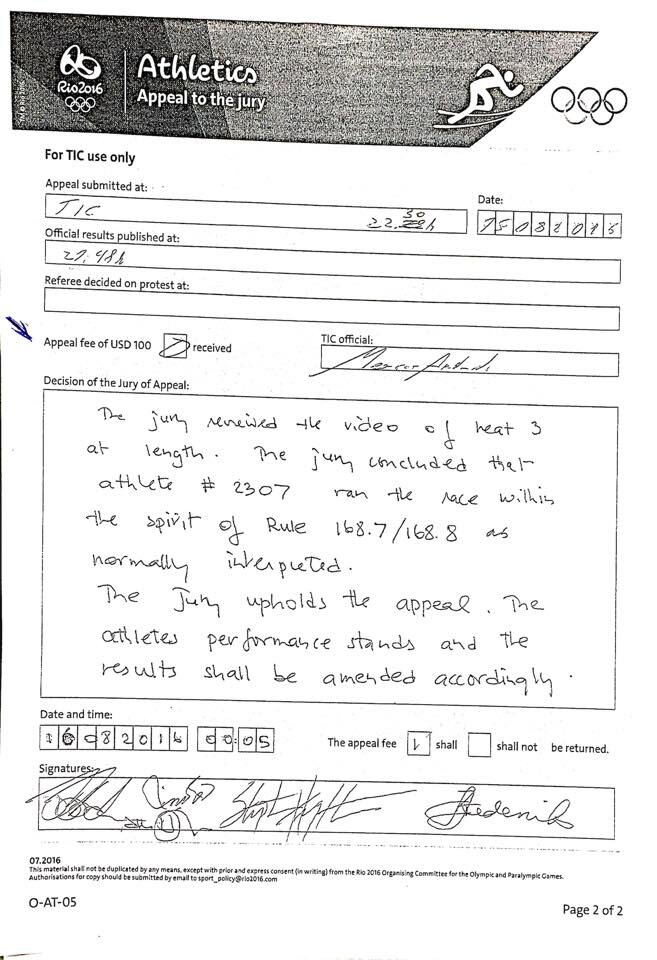 Rio2016
Athletics
Appeal to the jury
For TIC use only
Appeal submitted at:
TIC 22.30h
Date:
15082016
Official results published at:
21.48h
Referee decided on protest at:
Appeal fee of USD 100 received
TIC official:
Decision of the Jury of Appeal:
The jury reviewed the video of heat 3
at length. The jury concluded that
athlete # 2307 ran the race within
the spirit of Rule 168.7/168.8 as
normally interpreted.
The Jury upholds the appeal. The
athletes performance stands and the
results shall be amended accordingly.
Date and time:
16082016 00:05
The appeal fee shall shall not be returned.
Signatures:
07.2016
This material shall not be duplicated by any means, except with prior and express consent (in writing) from the Rio 2016 Organising Committee for the Olympic and Paralympic Games.
Authorisations for copy should be submitted by email to sport_policy@rio2016.com
O-AT-05
Page 2 of 2